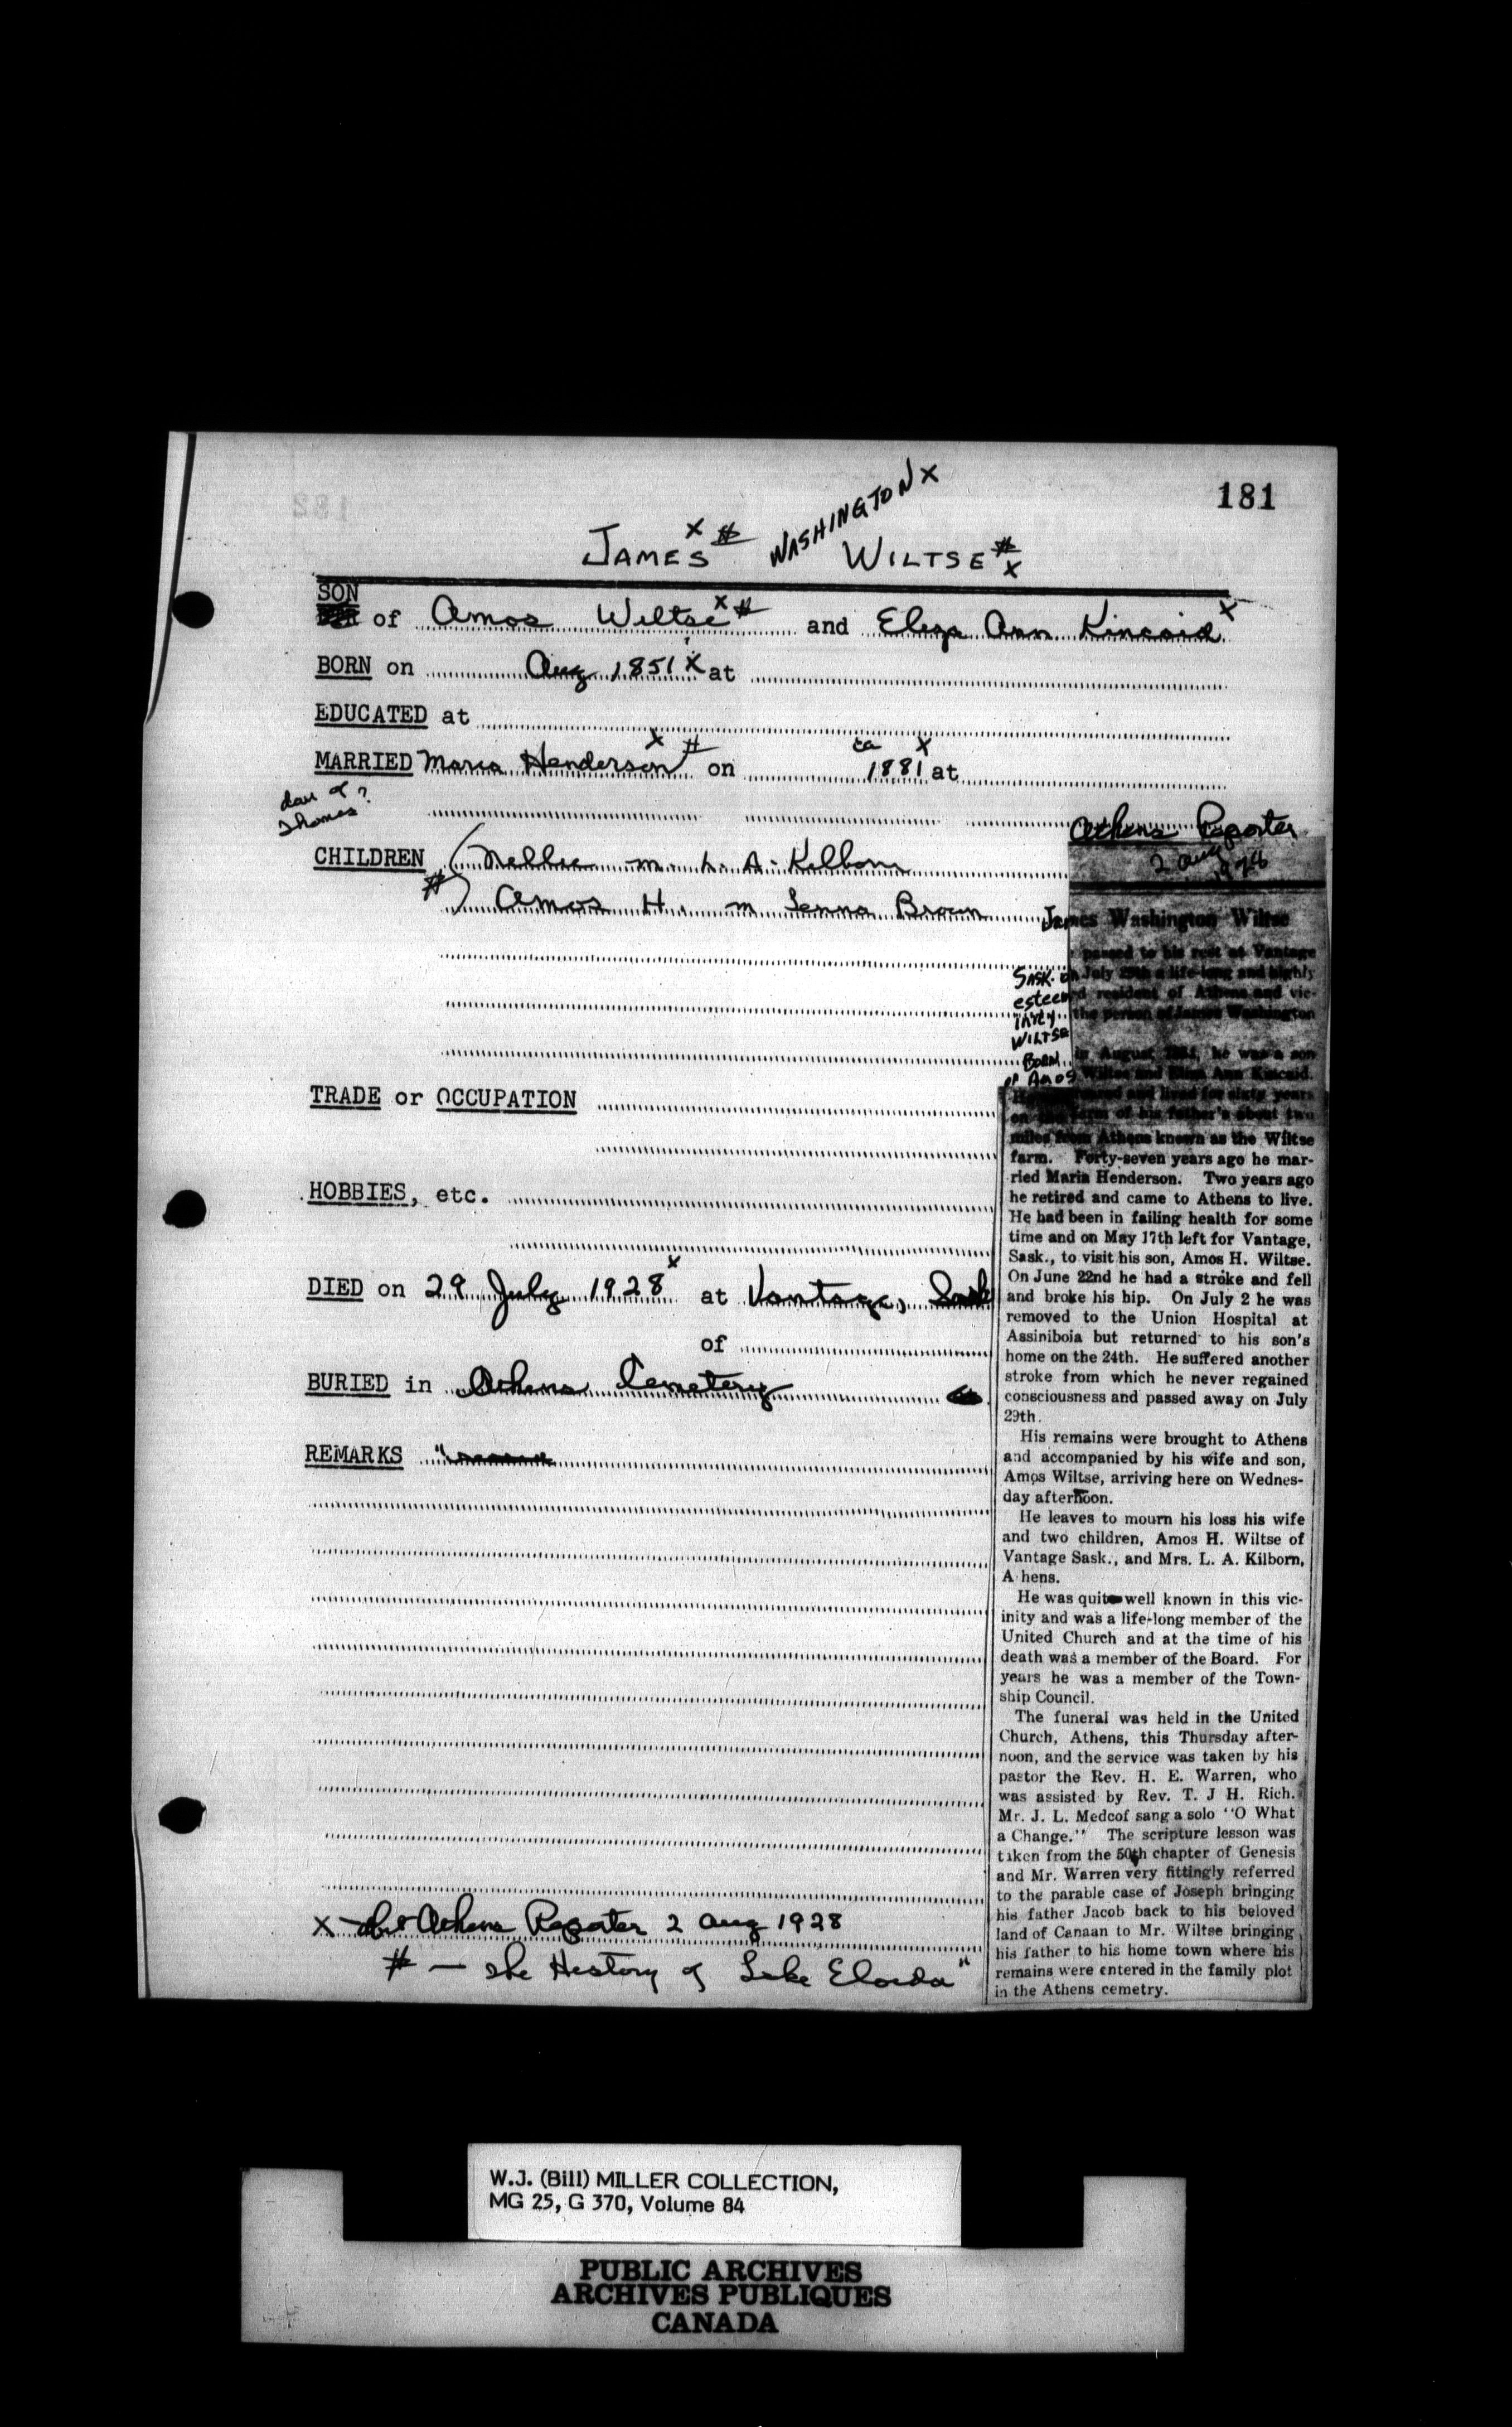 181
WASHINGTON X
JAMES X # WILTSE # X
SON
of Amos Wiltse X # and Eliza Ann Kincaid X
BORN on Aug 1851 X at
EDUCATED at
MARRIED Maria Henderson X # on ca 1881 X at
dau of ?
Thomas
CHILDREN ( Nellie m. L. A. Kilborn
# Amos H. m Lenna Brown
TRADE or OCCUPATION
HOBBIES, etc.
DIED on 29 July 1928 X at Vantage, Sask
of
BURIED in Athens Cemetery
REMARKS "
X - obit Athens Reporter 2 Aug 1928
# - The History of Lake Eloida"
Athens Reporter
2 Aug
1928
James Washington Wiltse
passed to his rest at Vantage
Sask. on July 29th a life-long and highly
esteemed resident of Athens and vic-
inity the person of James Washington
WILTSE
BORN in August he was a son
of Amos Wiltse and Eliza Ann Kincaid.
and lived for sixty years
on of his father's about two
miles from Athens known as the Wiltse
farm. Forty-seven years ago he mar-
ried Maria Henderson. Two years ago
he retired and came to Athens to live.
He had been in failing health for some
time and on May 17th left for Vantage,
Sask., to visit his son, Amos H. Wiltse.
On June 22nd he had a stroke and fell
and broke his hip. On July 2 he was
removed to the Union Hospital at
Assiniboia but returned to his son's
home on the 24th. He suffered another
stroke from which he never regained
consciousness and passed away on July
29th.
His remains were brought to Athens
and accompanied by his wife and son,
Amos Wiltse, arriving here on Wednes-
day afternoon.
He leaves to mourn his loss his wife
and two children, Amos H. Wiltse of
Vantage Sask., and Mrs. L. A. Kilborn,
A hens.
He was quite well known in this vic-
inity and was a life-long member of the
United Church and at the time of his
death was a member of the Board. For
years he was a member of the Town-
ship Council.
The funeral was held in the United
Church, Athens, this Thursday after-
noon, and the service was taken by his
pastor the Rev. H. E. Warren, who
was assisted by Rev. T. J H. Rich.
Mr. J. L. Medcof sang a solo "O What
a Change." The scripture lesson was
taken from the 50th chapter of Genesis
and Mr. Warren very fittingly referred
to the parable case of Joseph bringing
his father Jacob back to his beloved
land of Canaan to Mr. Wiltse bringing
his father to his home town where his
remains were entered in the family plot
in the Athens cemetry.
W.J. (Bill) MILLER COLLECTION,
MG 25, G 370, Volume 84
PUBLIC ARCHIVES
ARCHIVES PUBLIQUES
CANADA